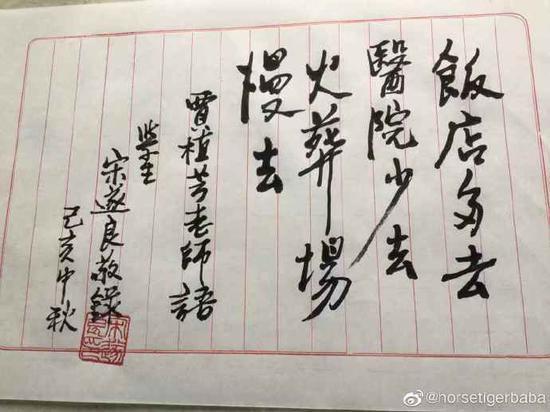 飯店多去
醫院少去
火葬場
慢去
賈植芳老師語
宋遂良敬錄
己亥中秋
@horsetigerbaba